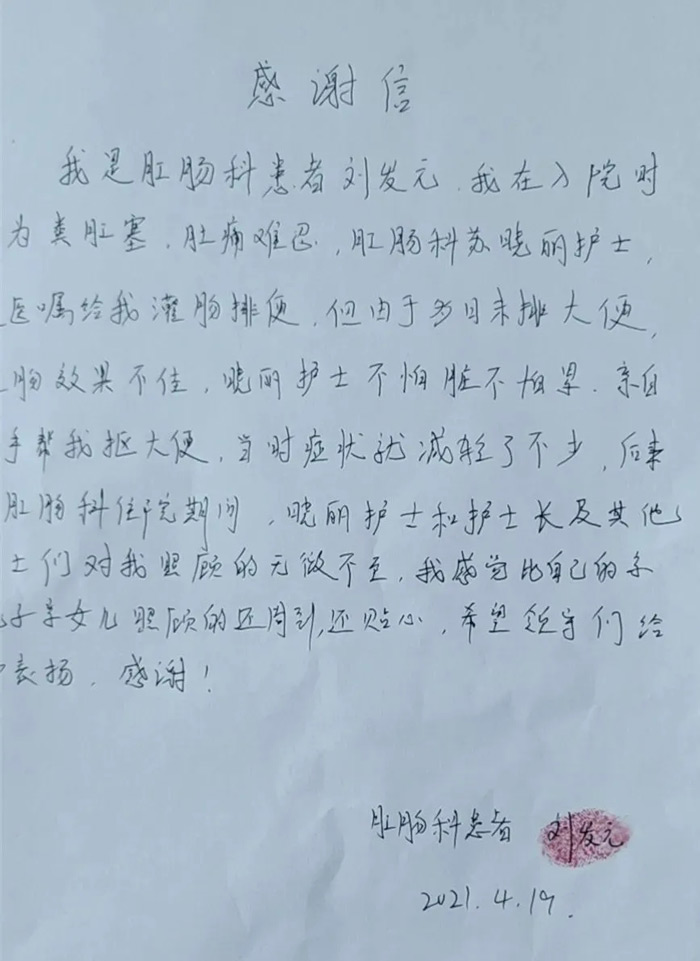 感谢信
我是肛肠科患者刘发元.我在入院时
为粪肛塞,肚痛难忍,肛肠科苏晓丽护士,
医嘱给我灌肠排便.但由于多日未排大便,
肠效果不佳,晓丽护士不怕脏不怕累.亲自
手帮我抠大便,当时症状就减轻了不少,后来
肛肠科住院期间,晓丽护士和护士长及其他
士们对我照顾的无微不至,我感觉比自己的亲
子亲女儿照顾的还周到,还贴心,希望领导们给
表扬.感谢!
肛肠科患者 刘发元
2021.4.19.